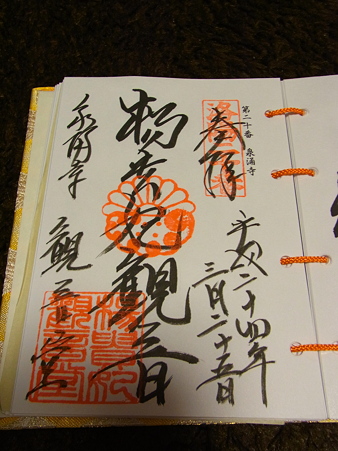 第二十番 泉涌寺
奉拝
平成二十四年
三月二十五日
楊貴妃觀音
泉涌寺
觀音堂
楊貴妃
觀音堂